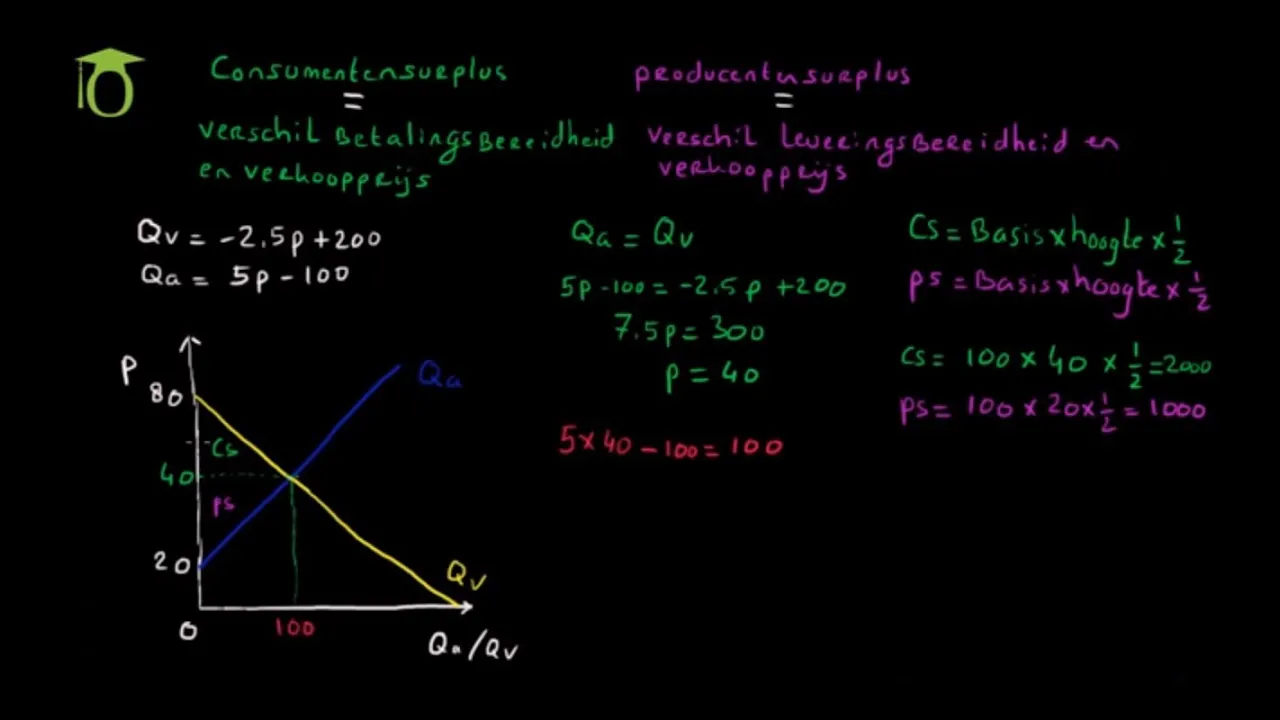 Consumentensurplus
=
verschil Betalingsbereidheid
en verkoopprijs
producentensurplus
=
verschil leveringsbereidheid en
verkoopprijs
Qv = -2.5p+200
Qa = 5p - 100
Qa = Qv
5p -100 = -2.5p +200
7.5p = 300
p = 40
5 x 40 - 100 = 100
Cs = Basis x hoogte x 1/2
ps = Basis x hoogte x 1/2
Cs = 100 x 40 x 1/2 = 2000
ps = 100 x 20 x 1/2 = 1000
P
80
Qa
Cs
40
ps
20
Qv
0
100
Qa/Qv